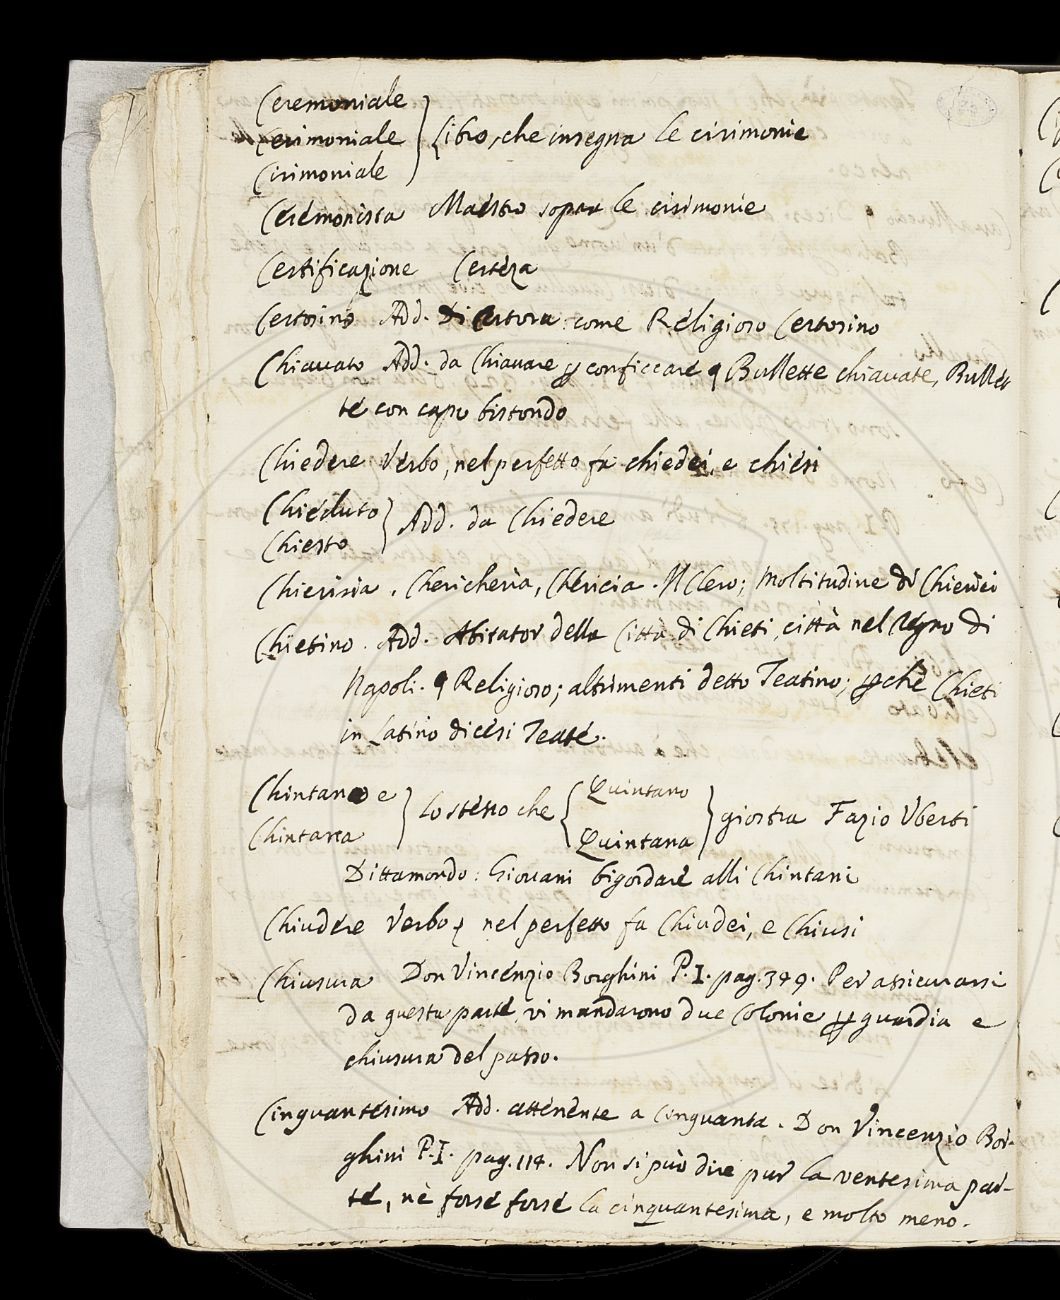 Ceremoniale
Cerimoniale } Libro, che insegna le cirimonie
Cirimoniale
Ceremonista Maestro sopra le cirimonie
Certificazione Certeza
Certosino Add. Di Certosa: come Religioso Certosino
Chiavato Add. da Chiavare ꝑ conficcare q Bullette chiavate, Bullet
te con capo bistondo
Chiedere Verbo, nel perfetto fa chiedei, e chiesi
Chieduto
Chiesto } Add. da Chiedere
Chierisia, Chericheria, Chericia. Il Clero; Moltitudine di Chierici
Chietino. Add. Abitator della Città di Chieti, città nel Regno di
Napoli. q Religioso; altrimenti detto Teatino; ꝑchè Chieti
in Latino dicesi Teate.
Chintano e
Chintana } Lo stesso che { Quintano
Quintana } giostra Fazio Uberti
Dittamondo: Giovani bigordare alli Chintani
Chiudere Verbo, nel perfetto fa Chiudei, e Chiusi
Chiusura Don Vincenzio Borghini P. I. pag. 349. Per assicurarsi
da questa parte, vi mandarono due Colonie ꝑ guardia e
chiusura del passo.
Cinquantesimo Add. attenente a cinquanta. Don Vincenzio Bor-
ghini P. I. pag. 114. Non si può dire pur la ventesima par-
te, nè forse forse la cinquantesima, e molto meno.